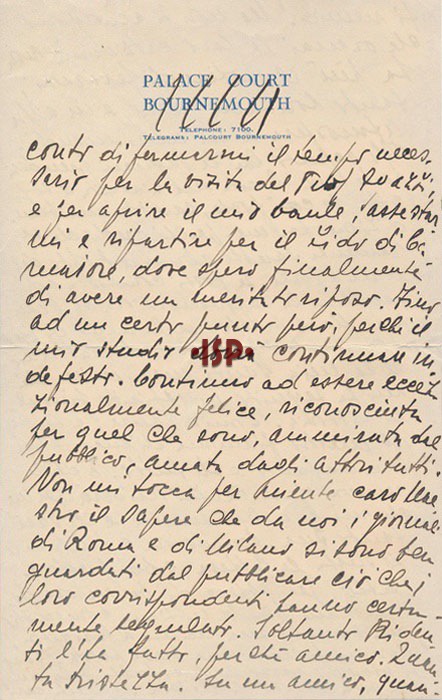 PALACE COURT
BOURNEMOUTH
TELEPHONE: 7100.
TELEGRAMS: PALCOURT BOURNEMOUTH
conto di fermarmi il tempo neces-
sario per la visita del Prof
e per aprire il mio baule, assestar
mi e ripartire per il Lido di Ca-
maiore, dove spero finalmente
di avere un meritato riposo. Fino
ad un certo punto però, perchè il
mio studio dovrà continuare in-
defesso. Continuo ad essere ecce-
zionalmente felice, riconosciuta
per quel che sono, ammirata dal
pubblico, amata dagli altri tutti.
Non mi tocca per niente caro Mae
stro il sapere che da noi i giornali
di Roma e di Milano si sono ben
guardati dal pubblicare ciò che i
loro corrispondenti hanno certa-
mente telefonato. Soltanto Riden
ti l'ha fatto, perchè amico. Quan
ta tristezza. Su un amico, quan-
ISP